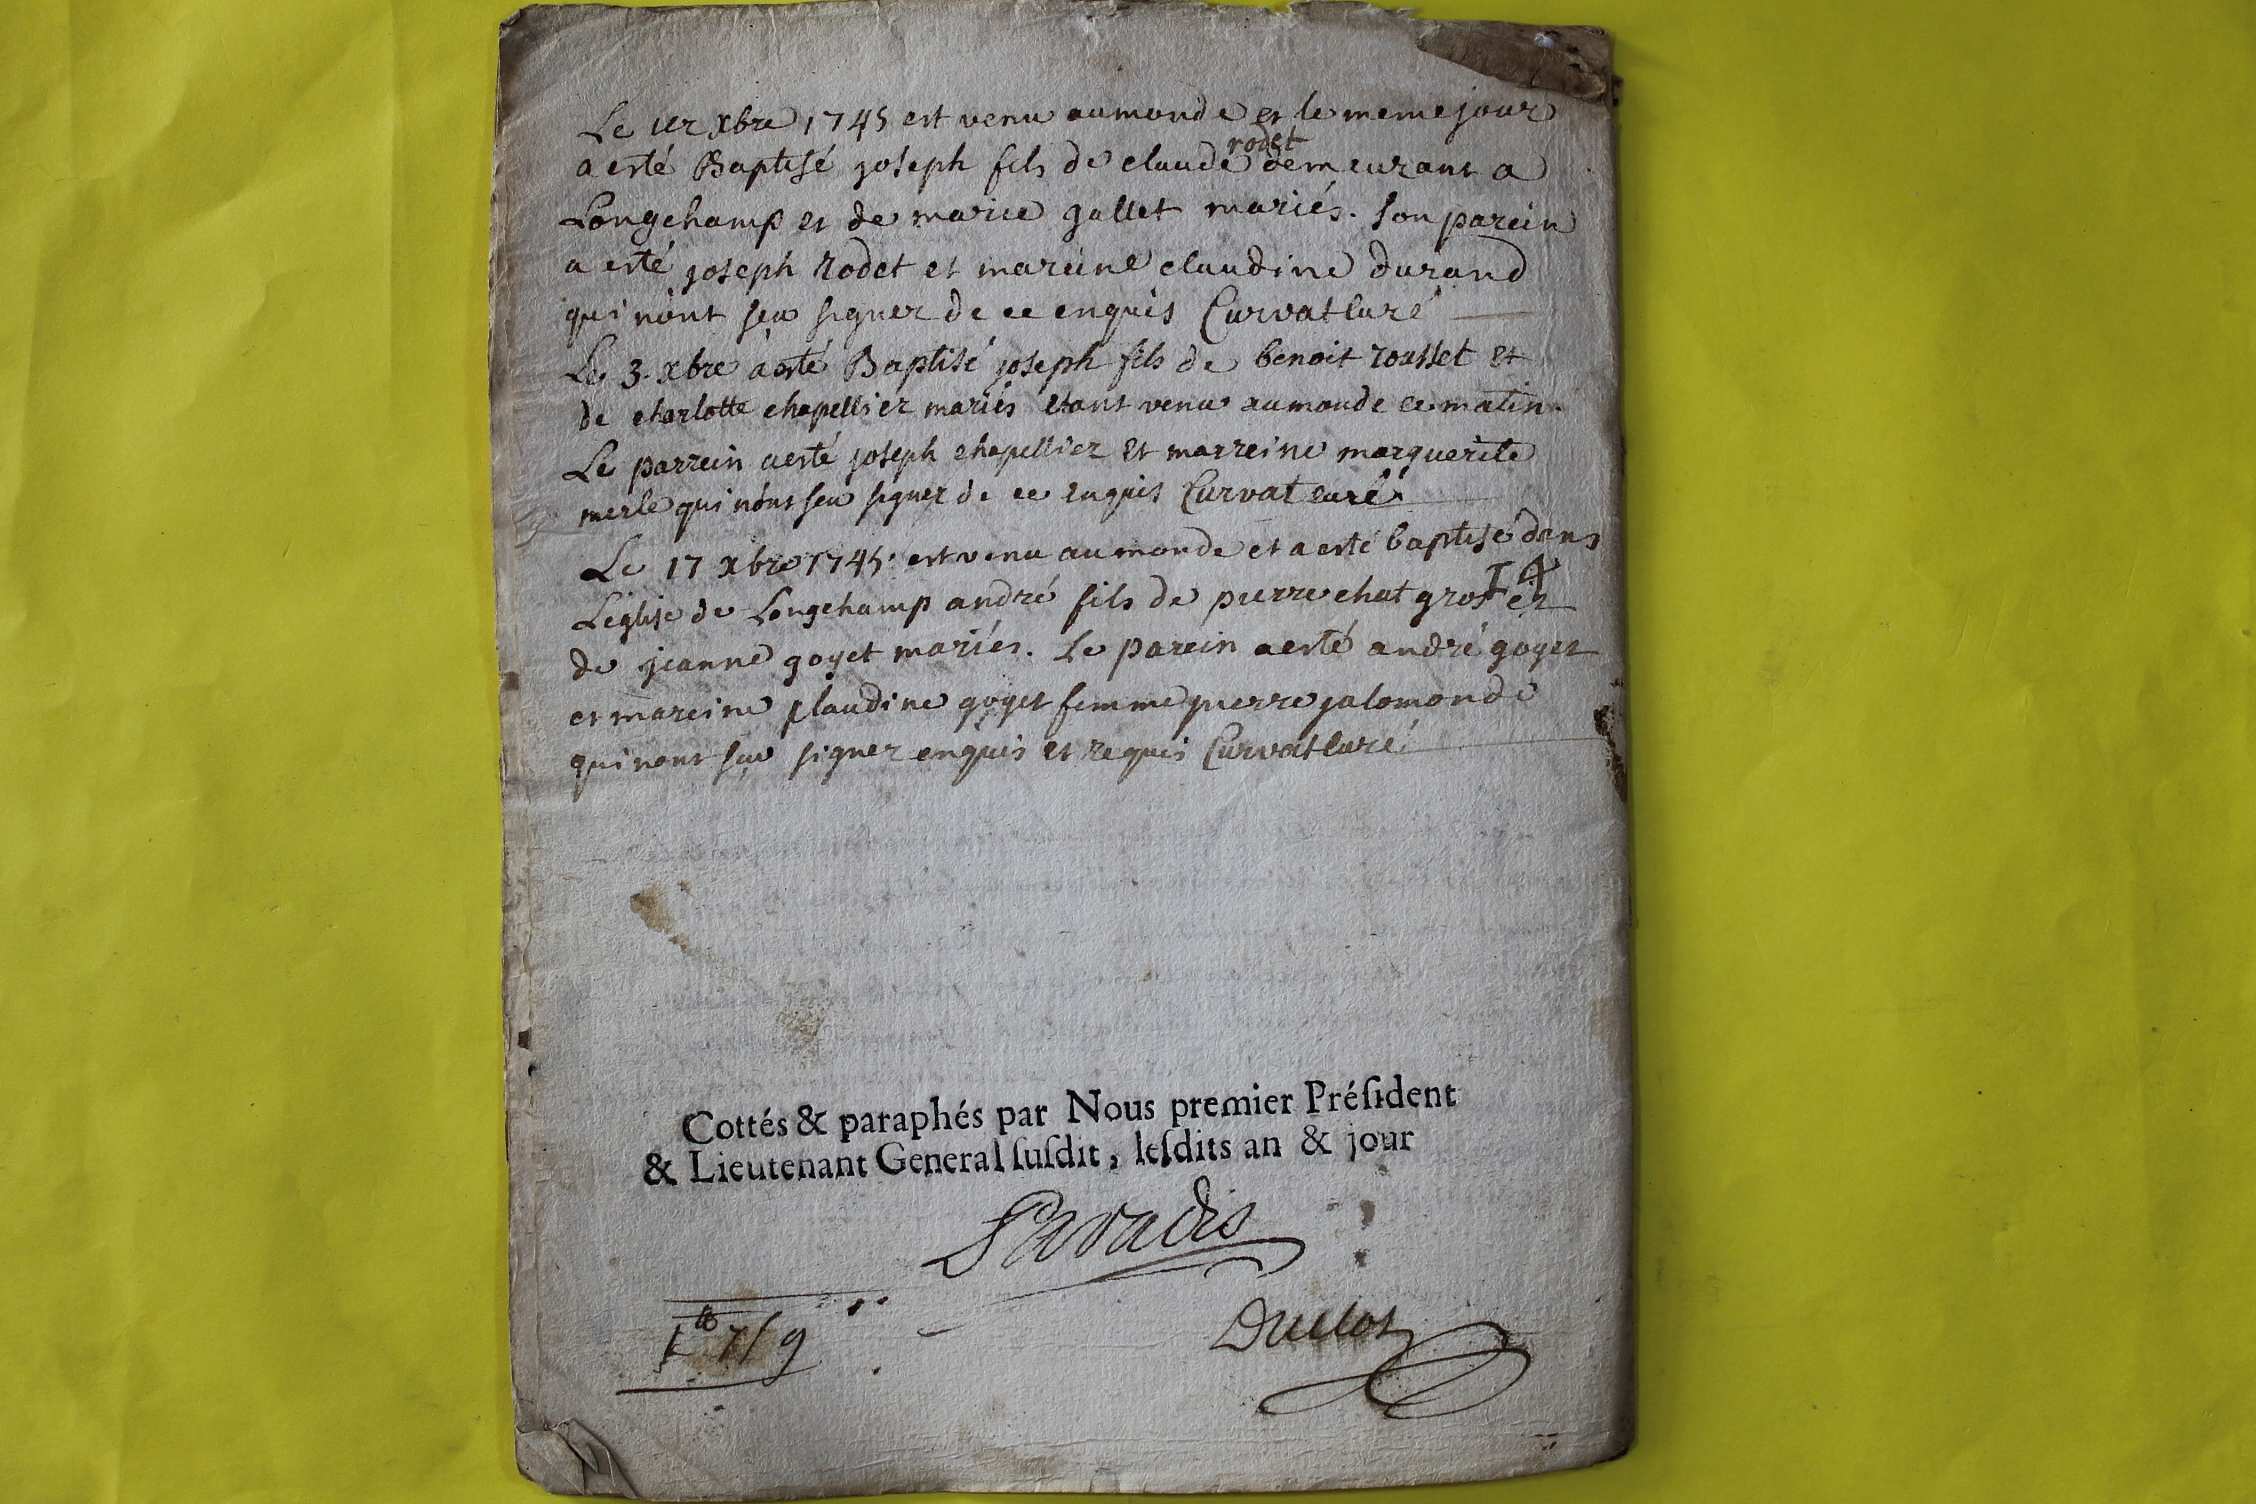 Le 1er xbre 1745 est venu au monde et le meme jour
a esté Baptisé joseph fils de claude rodet demeurant a
Longchamp et de marie gallet mariés. son parein
a esté joseph rodet et mareine claudine durand
qui n'ont sçu signer de ce enquis Curvat curé
Le 3. xbre a esté Baptisé joseph fils de benoit rousset et
de charlotte chapellier mariés etant venu au monde ce matin.
Le parrein a esté joseph chapellier et marreine marguerite
merle qui n'ont sçu signer de ce enquis Curvat curé
Le 17 xbre 1745. est venu au monde et a esté baptisé dans
L'eglise de Longchamp andré fils de pierre chat gros et
14
de jeanne goyet mariés. Le parein a esté andré goyet
et mareine claudine goyet femme pierre jalomonde
qui n'ont sçu signer enquis et requis Curvat curé
Cottés & paraphés par Nous premier Préſident
& Lieutenant General ſuſdit, leſdits an & jour
Paradis
Duclos